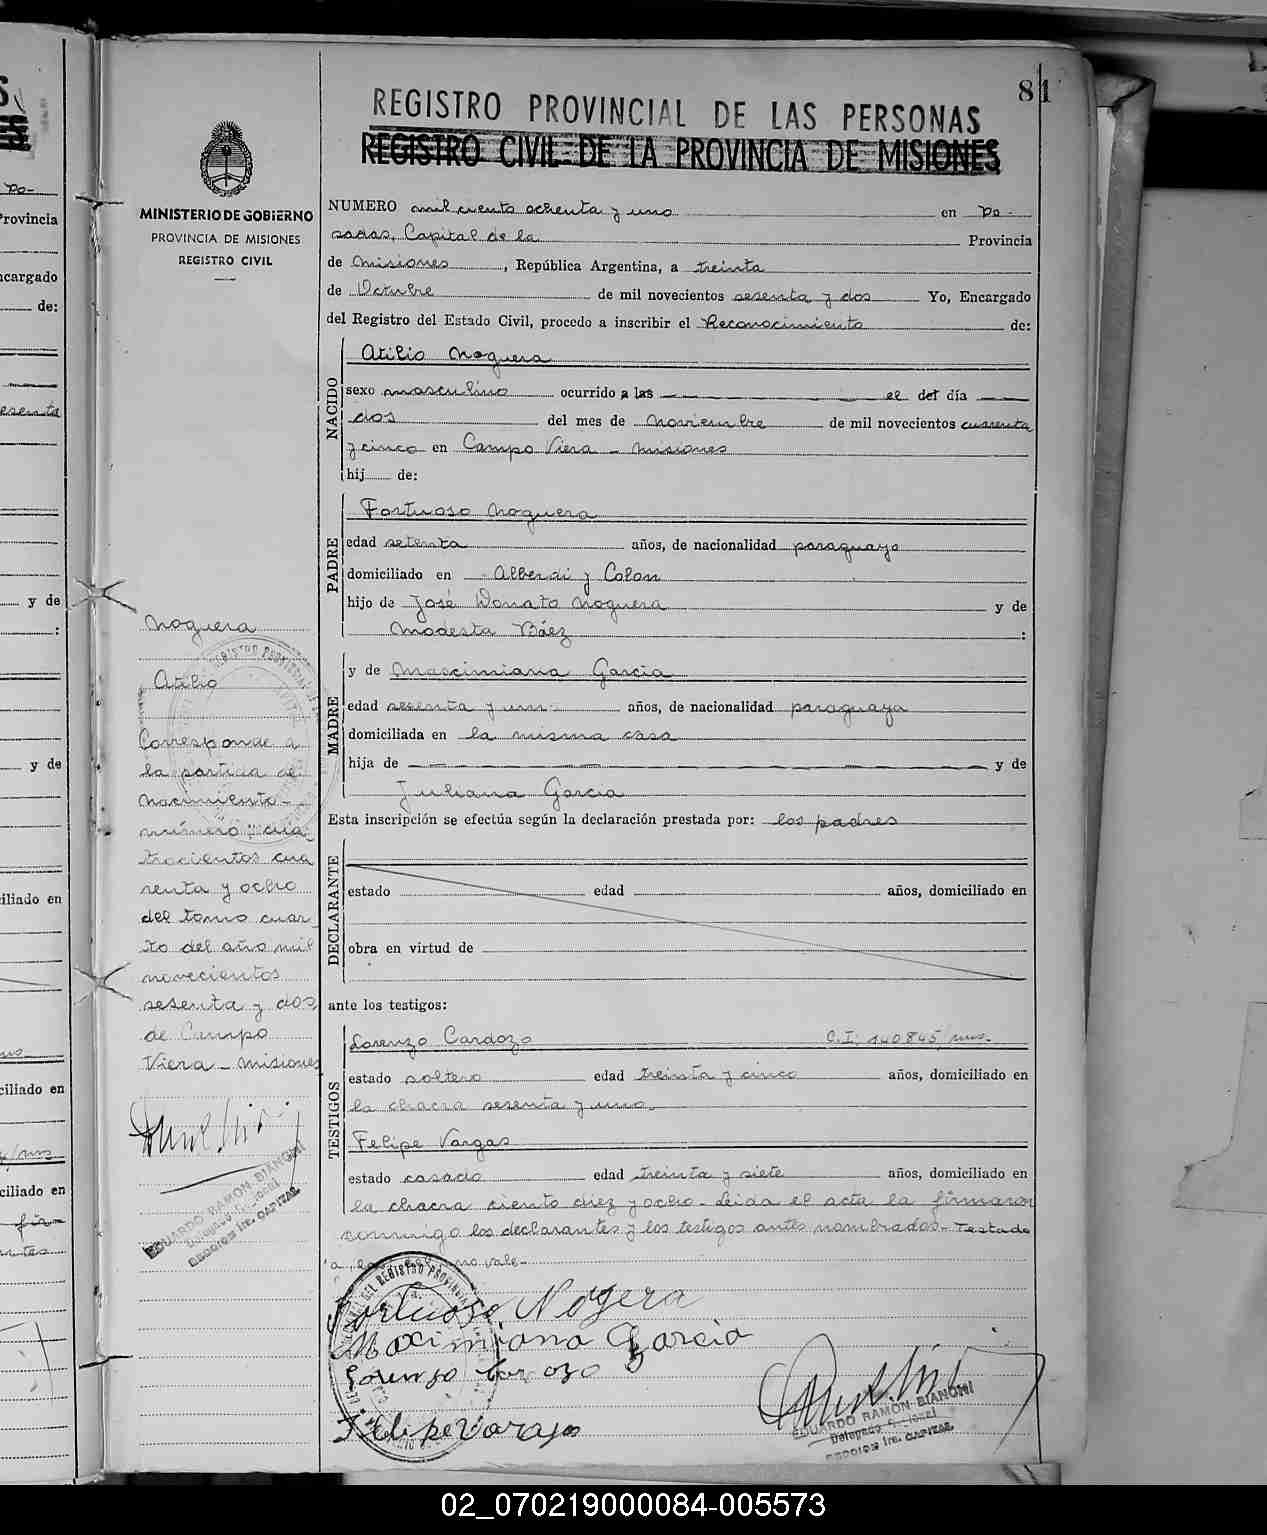 81
REGISTRO PROVINCIAL DE LAS PERSONAS
REGISTRO CIVIL DE LA PROVINCIA DE MISIONES
MINISTERIO DE GOBIERNO
PROVINCIA DE MISIONES
REGISTRO CIVIL
NUMERO mil ciento ochenta y uno en Po-
sadas, Capital de la Provincia
de Misiones, República Argentina, a treinta
de Octubre de mil novecientos sesenta y dos Yo, Encargado
del Registro del Estado Civil, procedo a inscribir el Reconocimiento de:
NACIDO
Atilio Noguera
sexo masculino ocurrido a las el del día
dos del mes de Noviembre de mil novecientos cuarenta
y cinco en Campo Viera - Misiones
hij de:
PADRE
Fortuoso Noguera
edad setenta años, de nacionalidad paraguayo
domiciliado en Alberdi y Colon
hijo de José Donato Noguera y de
Modesta Báez :
MADRE
y de Mascimiana García
edad sesenta y un años, de nacionalidad paraguaya
domiciliada en la misma casa
hija de y de
Juliana García
Esta inscripción se efectúa según la declaración prestada por: los padres
DECLARANTE
estado edad años, domiciliado en
obra en virtud de
ante los testigos:
TESTIGOS
Lorenzo Cardozo C.I; 140845, mns.
estado soltero edad treinta y cinco años, domiciliado en
la chacra sesenta y uno.
Felipe Vargas
estado casado edad treinta y siete años, domiciliado en
la chacra ciento diez y ocho - Leida el acta la firmaron
conmigo los declarantes y los testigos antes nombrados - Testado
no vale-
Fortuoso Nogera
Maximiana Garcia
Felipe Vargas
EDUARDO RAMON BIANCHI
Delegado
SECCION 1ra. CAPITAL
Noguera
Atilio
Corresponde a
la partida de
nacimiento -
número: cua
trocientos cua
renta y ocho
del tomo cuar
to del año mil
novecientos
sesenta y dos
de Campo
Viera - Misiones
EDUARDO RAMON BIANCHI
SECCION 1ra. CAPITAL
Provincia
de:
y de
:
y de
02_070219000084-005573